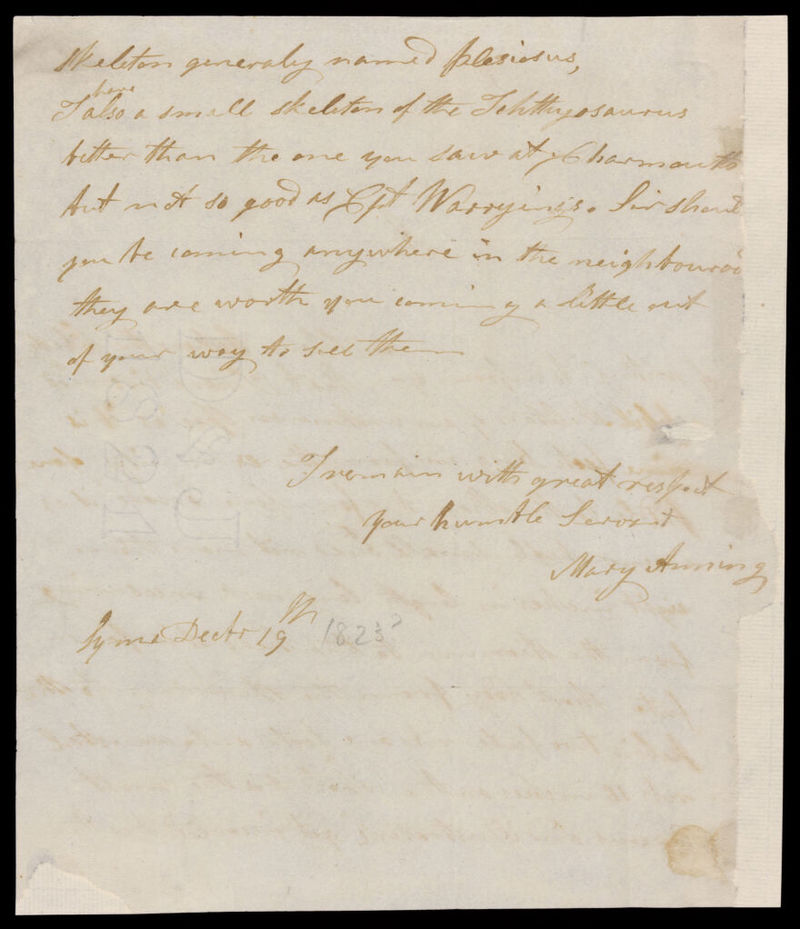 skeleton generaly named plesiosus,
I have also a small skeleton of the Ichthyosaurus
better than the one you saw at Charmouth
but not so good as Cpt Warryings. Sir shoud
you be coming anywhere in the neighbourood
they are worth you coming a little out
of your way to see them
I remain with great respect
your humble Servant
Mary Anning
Lyme Decbr 19th 1823?